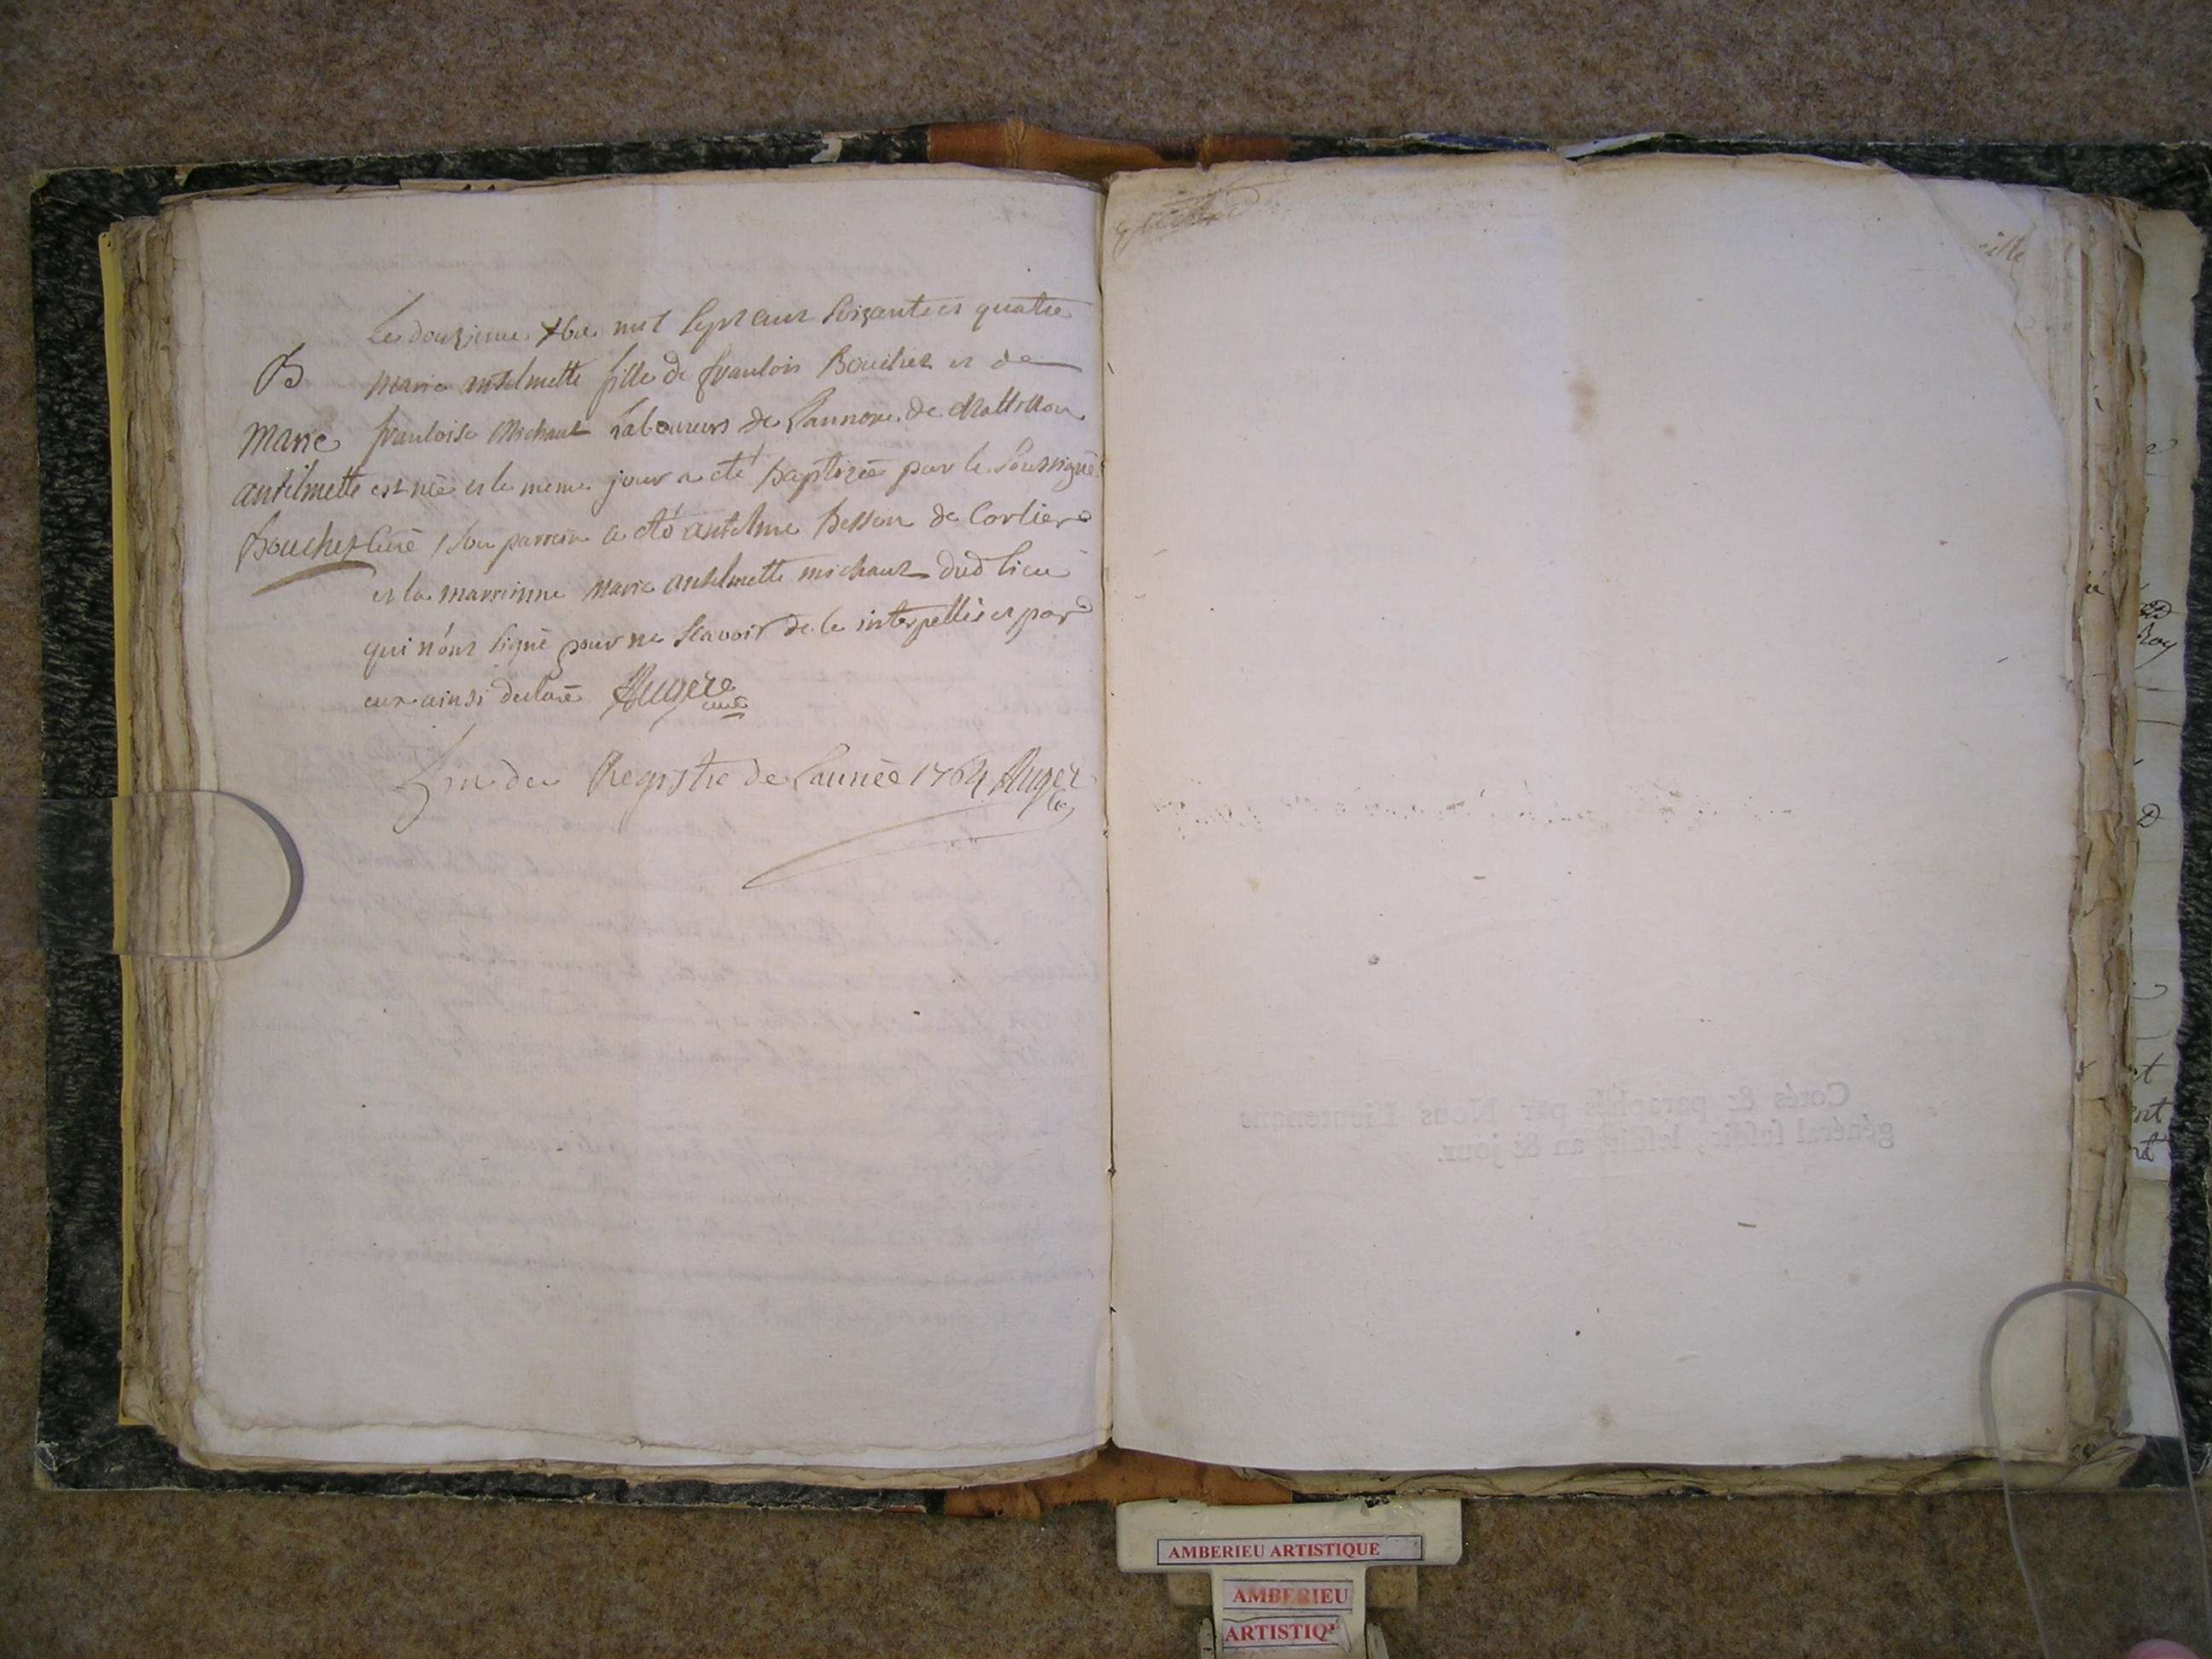 Le douzieme xbre mil sept cent soixante et quatre
B marie antelmette fille de francois Bouchet et de
Marie francoise Michaut Laboureurs de Lannoue de
antelmette est née et le meme jour a eté baptizée par le soussigné
Bouchet Curé, son parrein a eté antelme besson de Corlier
et la marrienne marie antelmette michaut dud lieu
qui n'ont signé pour ne scavoir de ce interpellés et par
eux ainsi declaré Auger curé
fin du Registre de L'année 1764 Auger
Cotés & paraphés par Nous Lieutenant
général susdit, lesdits an & jour.
AMBERIEU ARTISTIQUE
AMBERIEU
ARTISTIQ